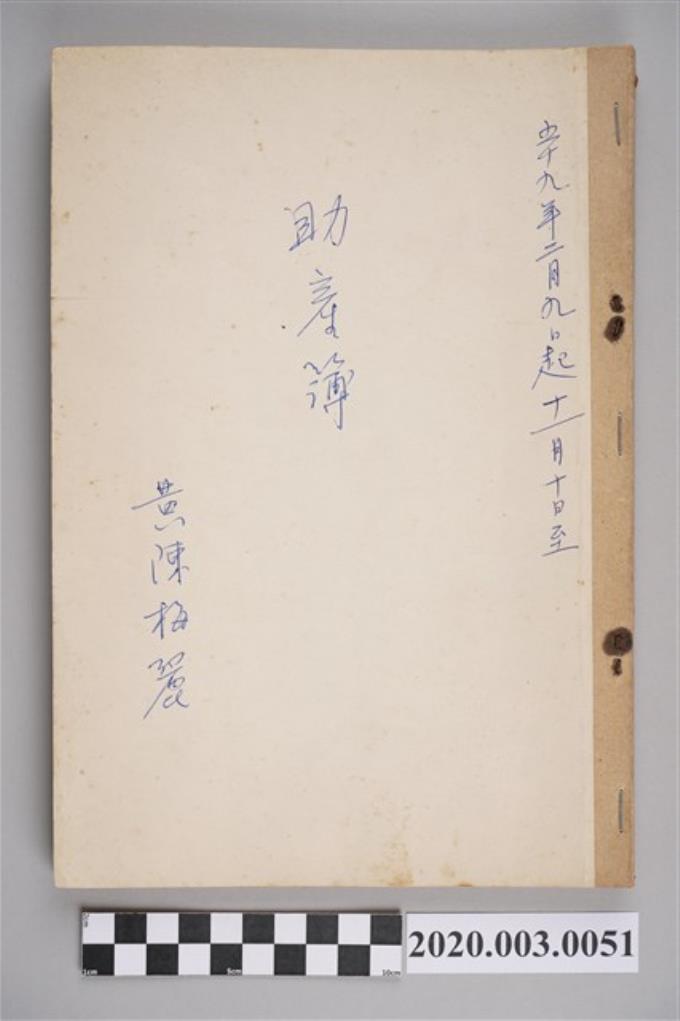 五十九年二月九日起十一月十日至
助產簿
黃陳梅麗
2020.003.0051
1cm
5cm
10cm